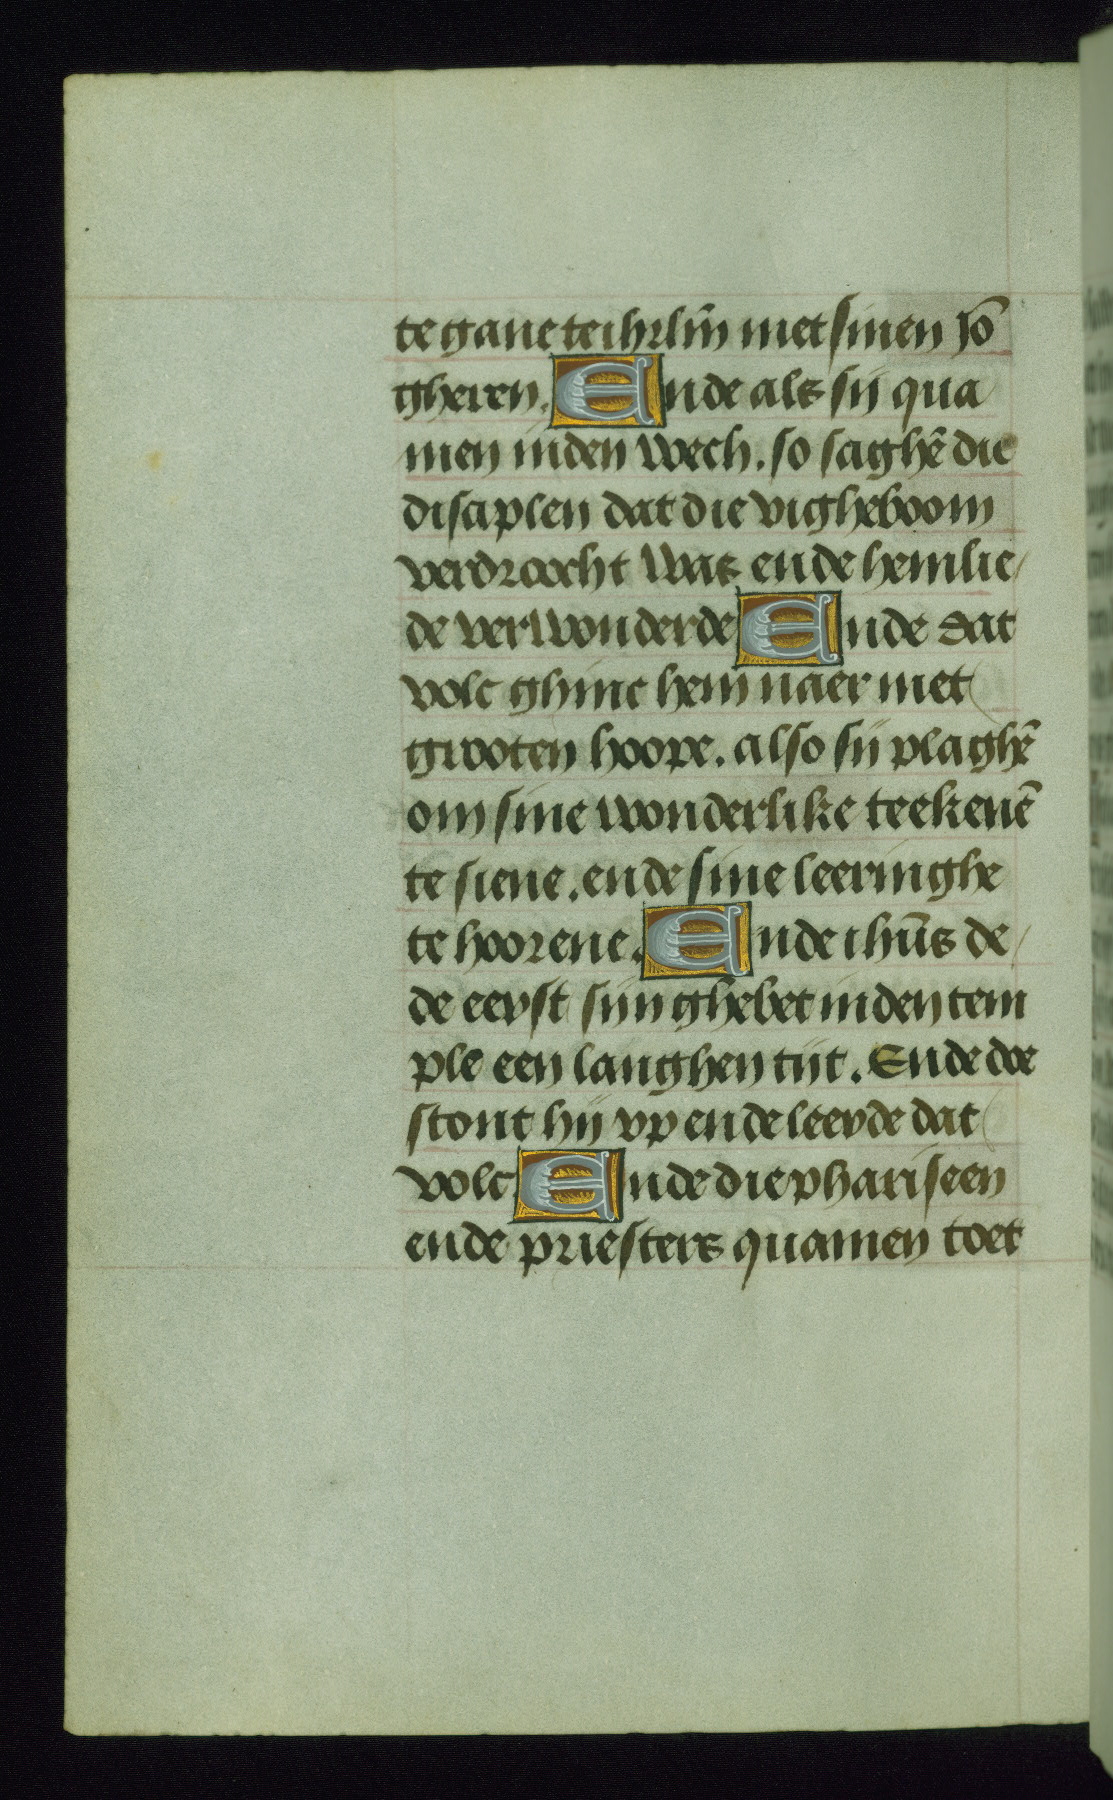 te gane te ihrlm̄ met sinen Jō
gheren. Ende als sij qua
men inden wech. so saghē die
disciplen dat die vigheboom
verdroocht was ende hemlie/
de verwonderde Ende dat
volc ghinc hem naer met
grooten hoope. also sij plaghē
om sine wonderlike teekenē
te siene. ende sine leeringhe
te hoorene. Ende ihūs de/
de eerst sijn ghebet inden tem
ple een langhen tijt. Ende doe
stont hij vp ende leerde dat
volc Ende die phariseen
ende priesters quamen toet